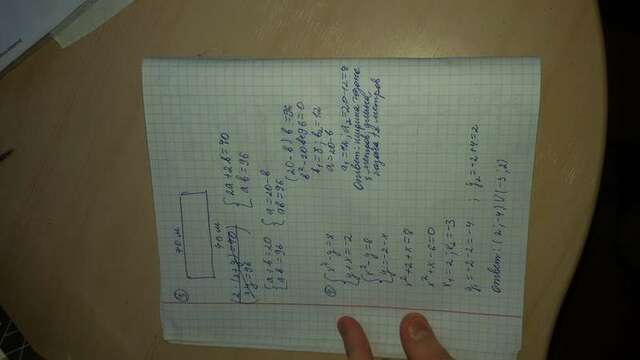 ④ 40 м
40 м
{2·(x+y)=40
{xy=96
{2a+2b=40
{ab=96
{a+b=20
{ab=96
{a=20-b
{ab=96
(20-b)b=96
b²-20b+96=0
b₁=8; b₂=12
a=20-b
a₁=12; a₂=20-12=8
Ответ: ширина газона
8 метров; длина
газона 12 метров
⑤ {x²-y=8
{y+x=-2
{x²-y=8
{y=-2-x
x²+2+x=8
x²+x-6=0
x₁=2; x₂=-3
y₁=-2-2=-4 ; y₂=-2+4=2
Ответ: (2;-4)U(-3;2)